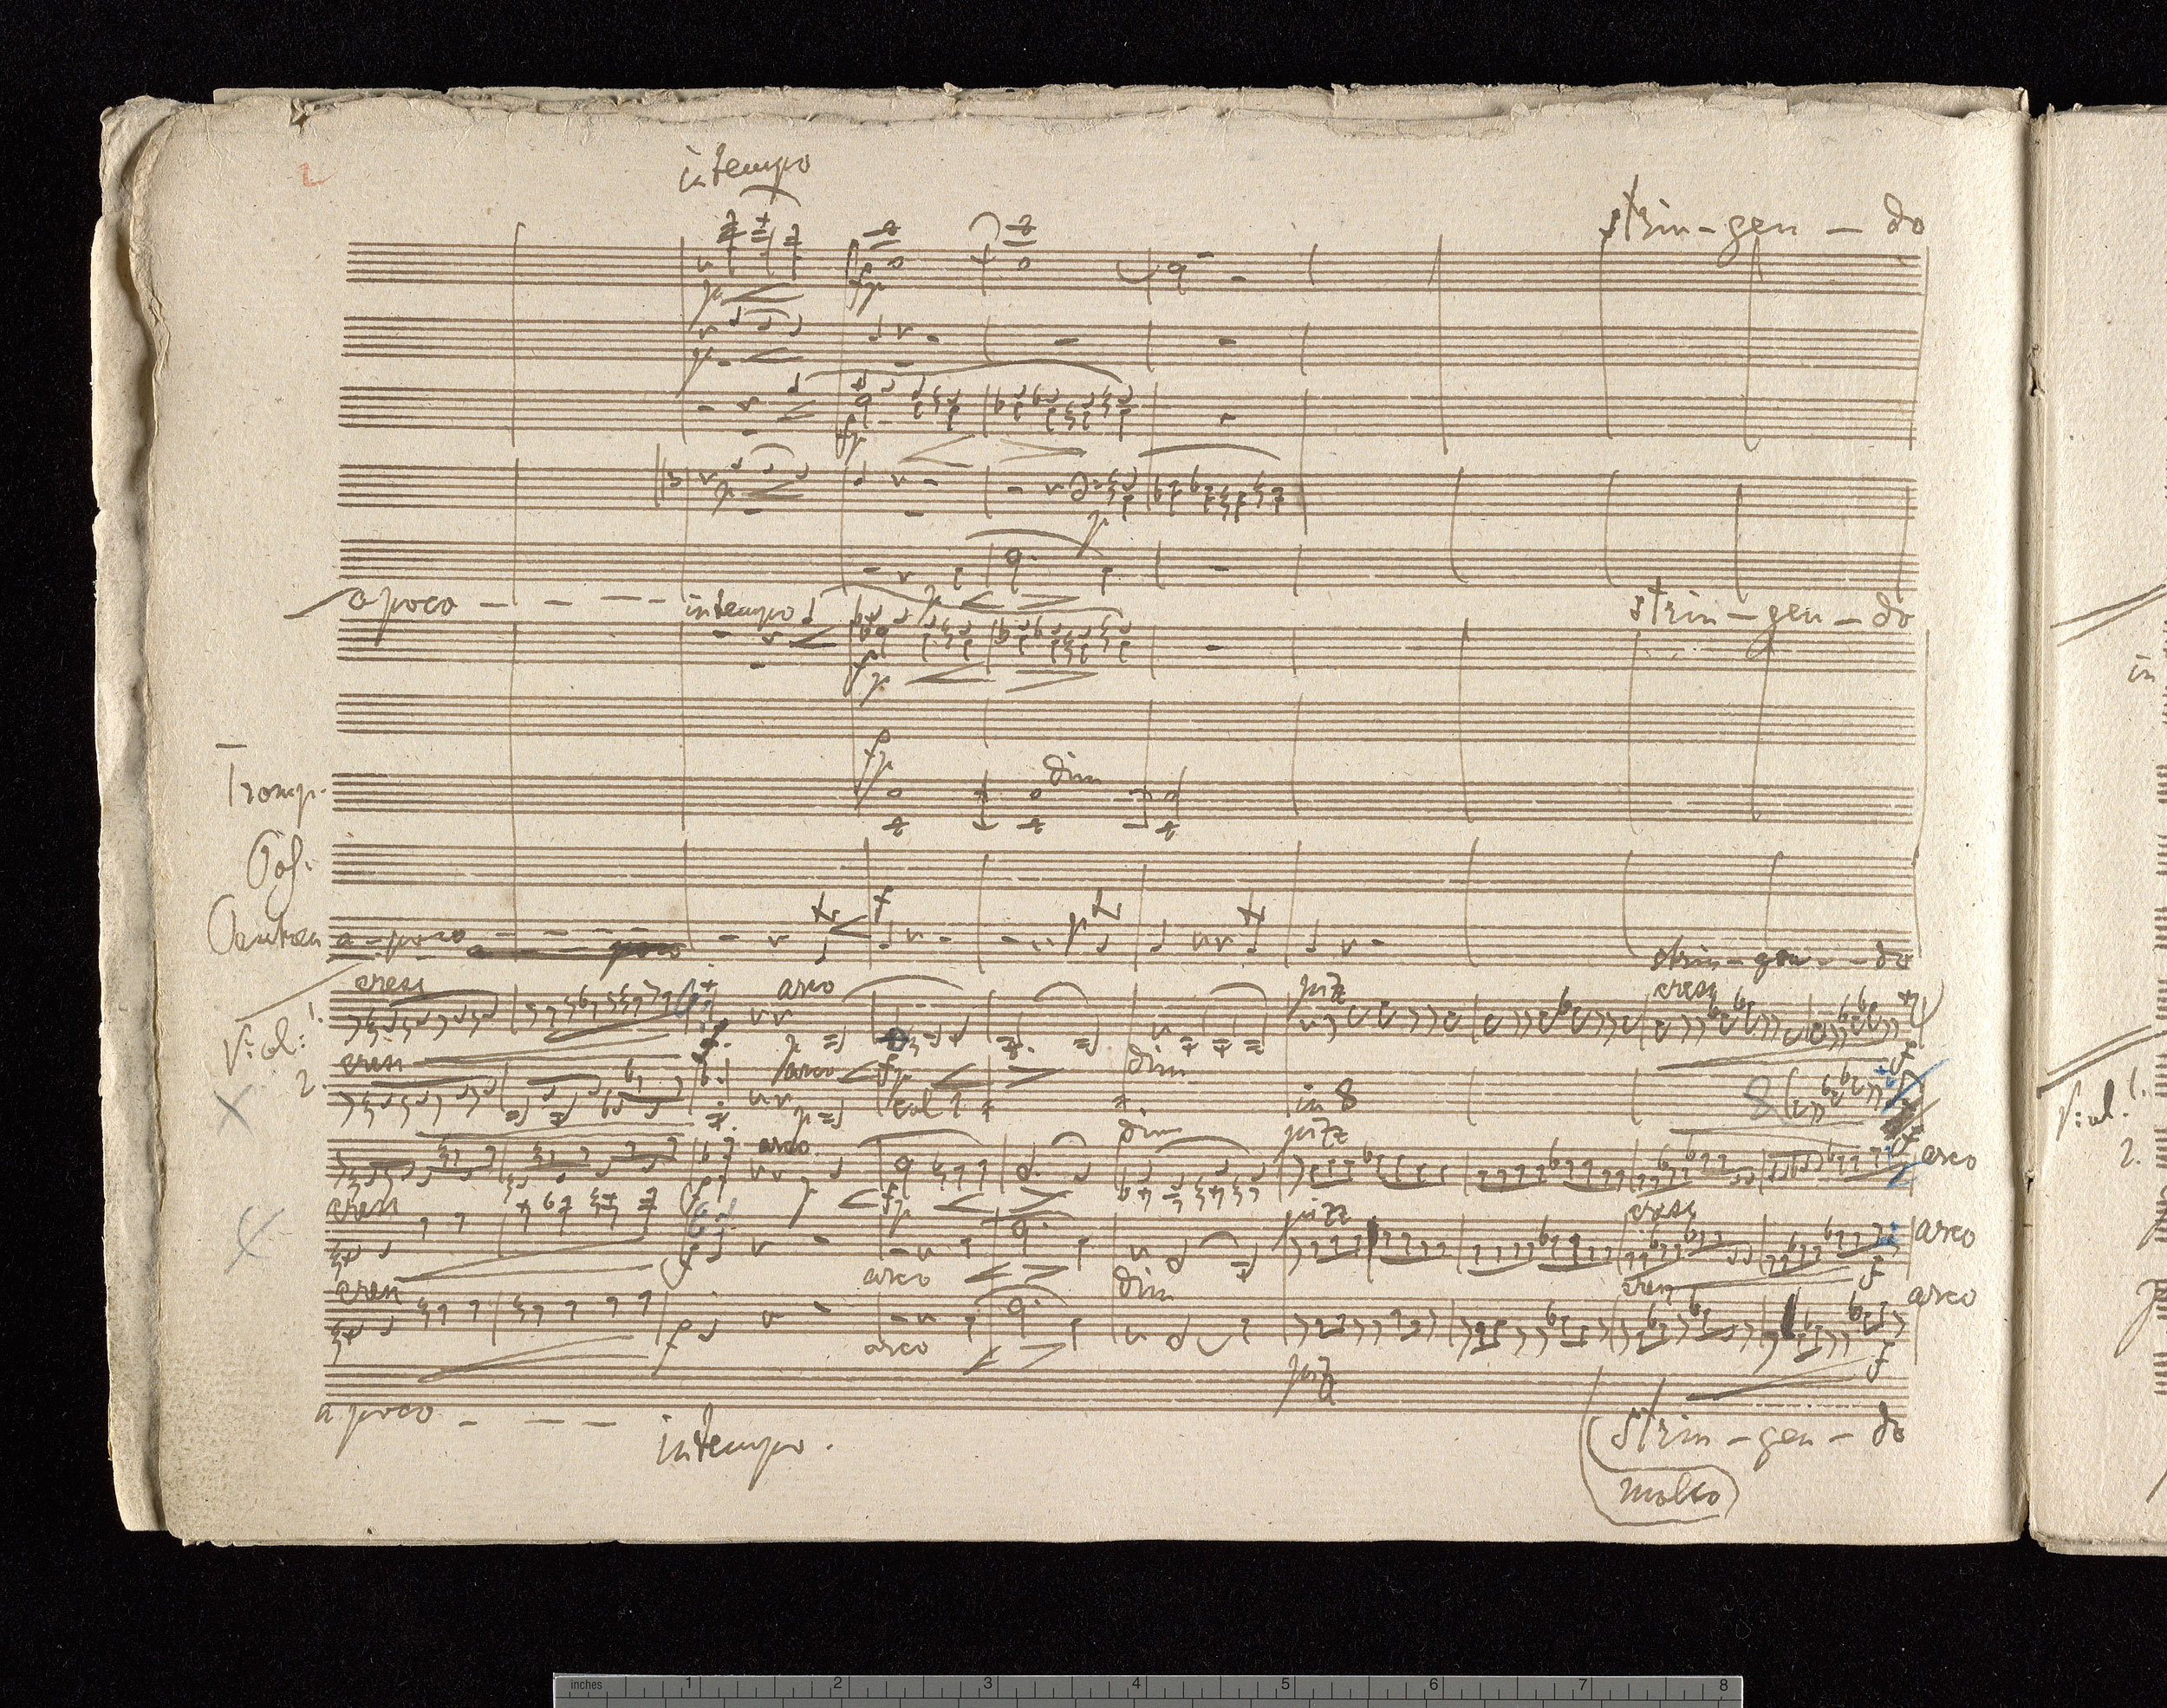 2
in tempo
strin - gen - do
p
fp
p
fp
p
p
a poco - - - - in tempo
p
strin - gen - do
fp
fp
Tromp.
dim
Pos.
tr f p tr tr
Pauken a - poco - - - poco
strin - gen - - do
cresc arco pizz cresc
Viol: 1.
p
f
cresc arco fp dim
2. p col 1 in 8 8
arco dim pizz
arco
p fp
cresc pizz cresc arco
f arco dim f
cresc cresc arco
f arco pizz f
a poco - - - - in tempo.
strin - gen - do
molto
in
Viol. 1.
2.
inches 1 2 3 4 5 6 7 8